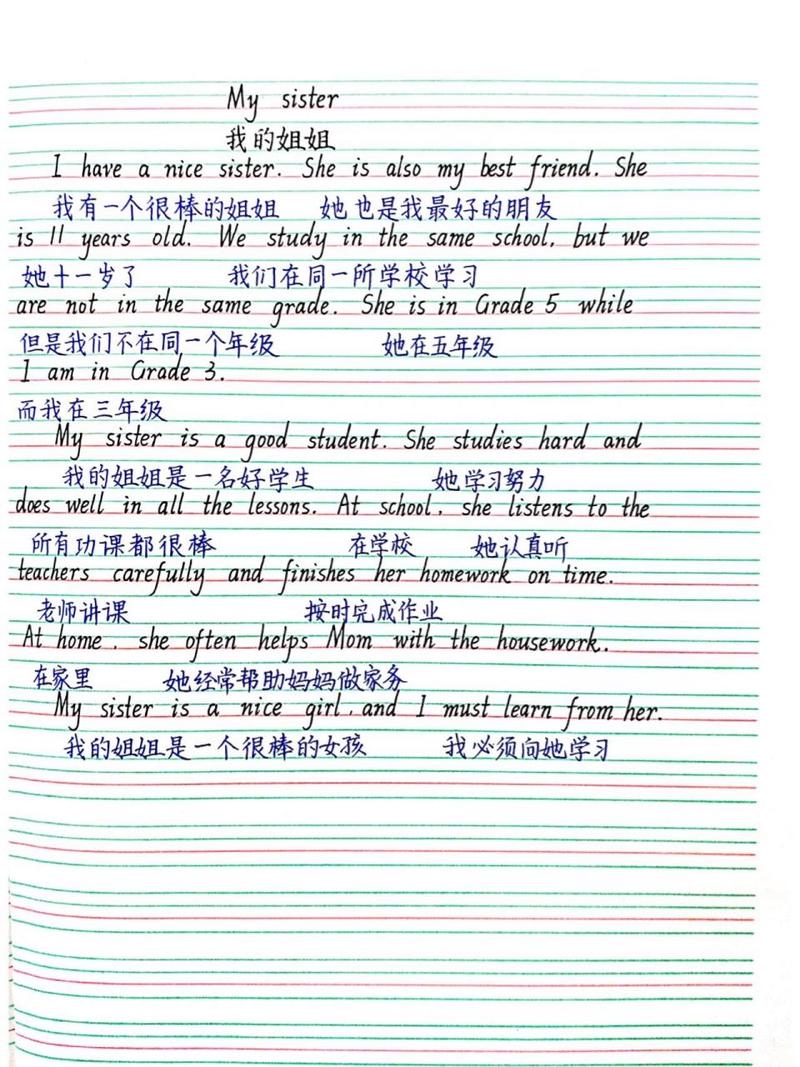 My sister
我的姐姐
I have a nice sister. She is also my best friend. She
我有一个很棒的姐姐 她也是我最好的朋友
is 11 years old. We study in the same school, but we
她十一岁了 我们在同一所学校学习
are not in the same grade. She is in Grade 5 while
但是我们不在同一个年级 她在五年级
I am in Grade 3.
而我在三年级
My sister is a good student. She studies hard and
我的姐姐是一名好学生 她学习努力
does well in all the lessons. At school, she listens to the
所有功课都很棒 在学校 她认真听
teachers carefully and finishes her homework on time.
老师讲课 按时完成作业
At home, she often helps Mom with the housework.
在家里 她经常帮助妈妈做家务
My sister is a nice girl, and I must learn from her.
我的姐姐是一个很棒的女孩 我必须向她学习